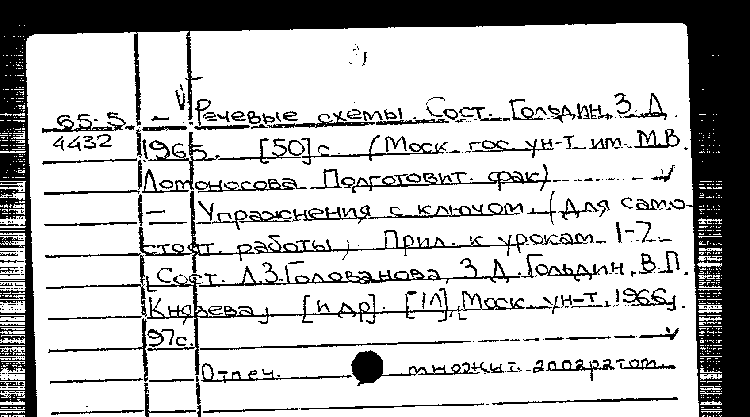 65-5 — Речевые схемы. Сост. Гольдин, З.Д.
4432 1965. [50] с. (Моск. гос. ун-т им. М.В.
Ломоносова. Подготовит. фак)
— Упражнения с ключом. (Для само-
стоят. работы). Прил. к урокам 1-7.
[Сост. Л.З.Голованова, З.Д. Гольдин, В.П.
Князева, [и др]. [М], [Моск. ун-т, 1966].
97с.
Отпеч. множит. аппаратом.